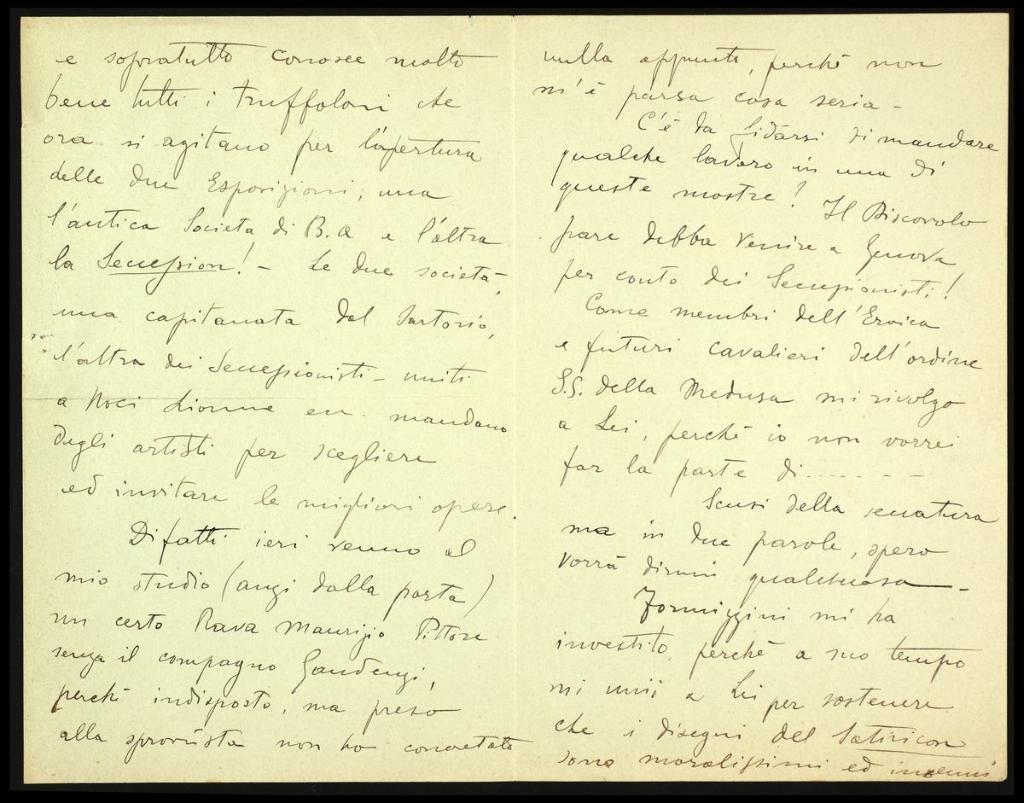 e sopratutto conosce molto
bene tutti i truffoloni che
ora si agitano per l'apertura
delle due Esposizioni, una
l'antica Società di B.A e l'altra
la Secession! - Le due società,
una capitanata dal Sartorio,
l'altra dei Secessionisti - uniti
a Noci Lionne ecc. mandano
degli artisti per scegliere
ed invitare le migliori opere.
Difatti ieri venne al
mio studio (anzi dalla porta)
un certo Rava Maurizio Pittore
senza il compagno Gaudenzi,
perchè indisposto, ma preso
alla sprovvista non ho concretato
nulla appunto, perchè non
m'è parsa cosa seria -
C'è da fidarsi di mandare
qualche lavoro in una di
queste mostre! Il Discovolo
pare debba venire a Genova
per conto dei Secessionisti!
Come membri dell'Eroica
e futuri cavalieri dell'ordine
S.S. della Medusa mi rivolgo
a Lei, perchè io non vorrei
far la parte di.......
Scusi della seccatura
ma in due parole, spero
vorrà dirmi qualchecosa -
Formiggini mi ha
investito, perchè a suo tempo
mi unii a Lei per sostenere
che i disegni del Satiricon
sono moralissimi ed